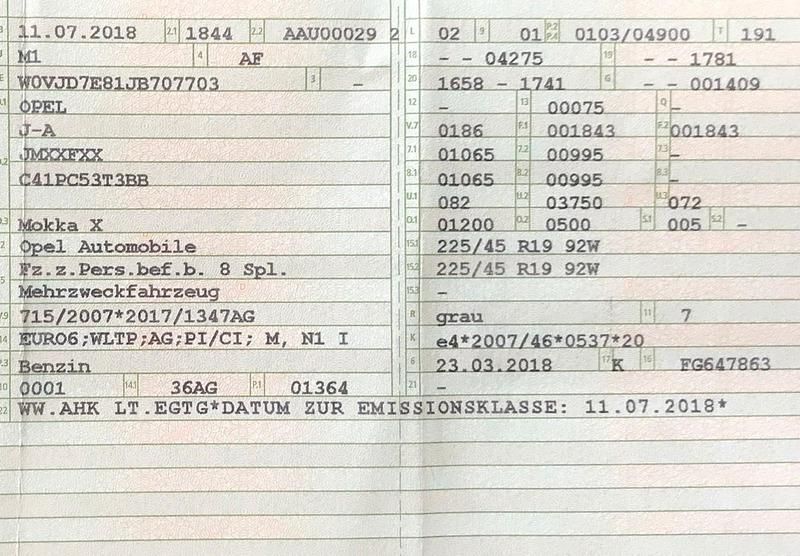 B 11.07.2018 2.1 1844 2.2 AAU00029 2 L 02 9 01 P.2 P.4 0103/04900 T 191
J M1 4 AF 18 - - 04275 19 - - 1781
E W0VJD7E81JB707703 3 - 20 1658 - 1741 G - - 001409
D.1 OPEL 12 - 13 00075 Q -
J-A V.7 0186 F.1 001843 F.2 001843
D.2 JMXXFXX 7.1 01065 7.2 00995 7.3 -
C41PC53T3BB 8.1 01065 8.2 00995 8.3 -
U.1 082 U.2 03750 U.3 072
D.3 Mokka X O.1 01200 O.2 0500 S.1 005 S.2 -
2 Opel Automobile 15.1 225/45 R19 92W
5 Fz.z.Pers.bef.b. 8 Spl. 15.2 225/45 R19 92W
Mehrzweckfahrzeug 15.3 -
V.9 715/2007*2017/1347AG R grau 11 7
14 EURO6;WLTP;AG;PI/CI; M, N1 I K e4*2007/46*0537*20
P.3 Benzin 6 23.03.2018 17 K 16 FG647863
10 0001 14.1 36AG P.1 01364 21 -
22 WW.AHK LT.EGTG*DATUM ZUR EMISSIONSKLASSE: 11.07.2018*